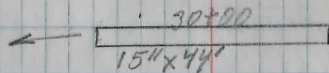 30+00
15" x 44'